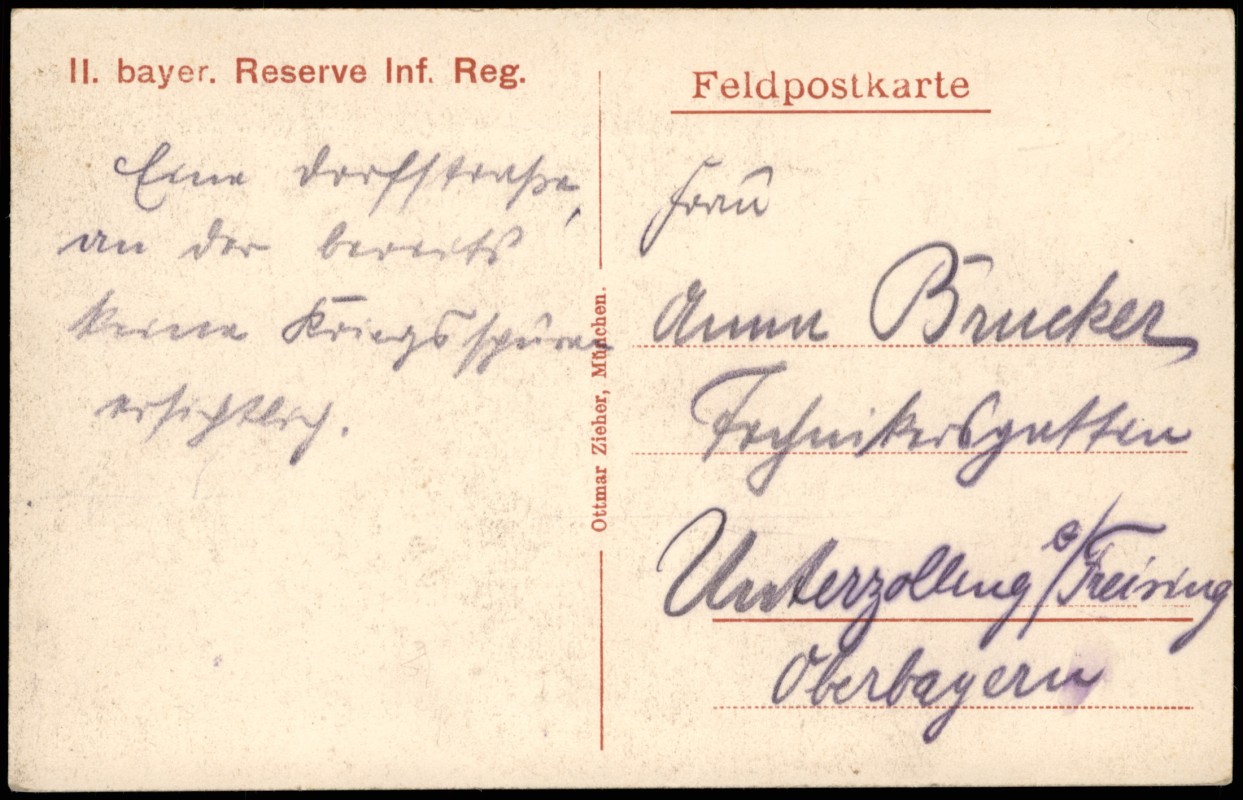 II. bayer. Reserve Inf. Reg.
Eine Dorfstraße,
an der bereits
keine Kriegsspuren
ersichtlich.
Ottmar Zieher, München.
Feldpostkarte
Frau
Anna Brucker
Technikersgatten
Unterzolling b/Freising
Oberbayern